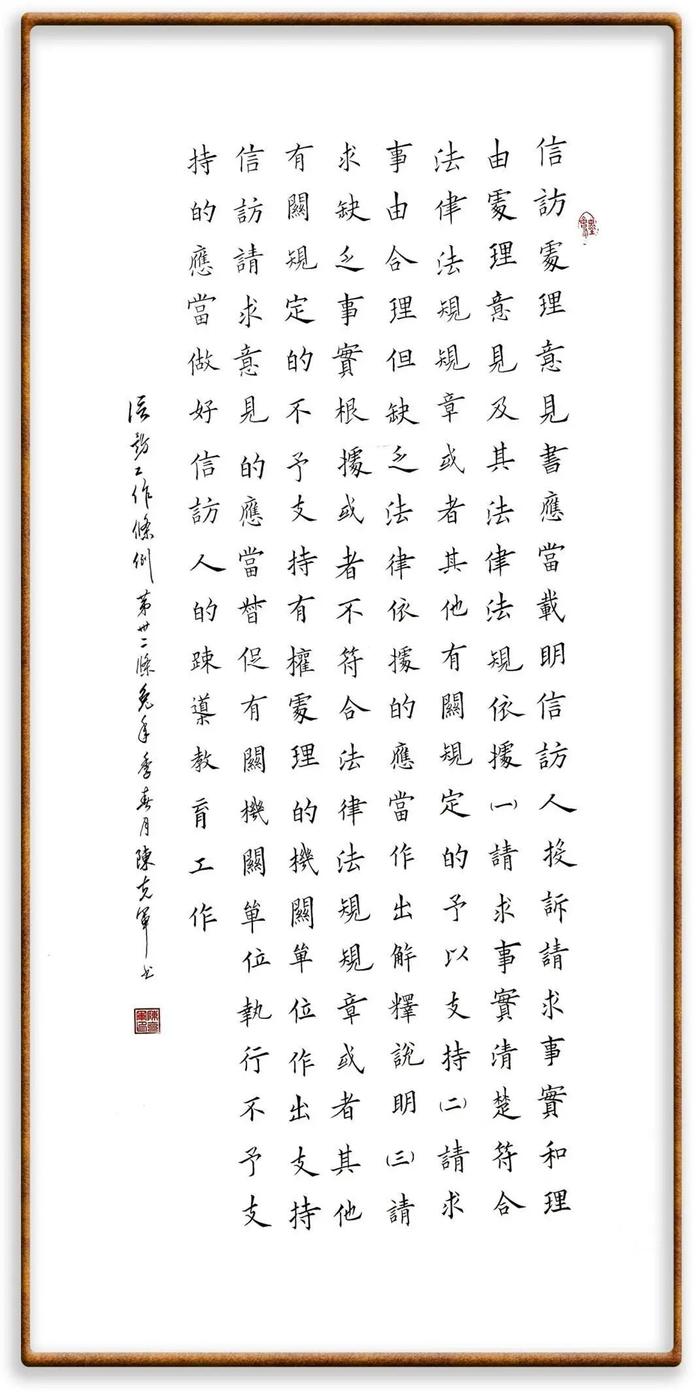 信訪處理意見書應當載明信訪人投訴請求事實和理
由處理意見及其法律法規依據㈠請求事實清楚符合
法律法規規章或者其他有關規定的予以支持㈡請求
事由合理但缺乏法律依據的應當作出解釋說明㈢請
求缺乏事實根據或者不符合法律法規規章或者其他
有關規定的不予支持有權處理的機關單位作出支持
信訪請求意見的應當督促有關機關單位執行不予支
持的應當做好信訪人的踈導教育工作
信訪工作條例第卅二條兔年季春月陳克軍书